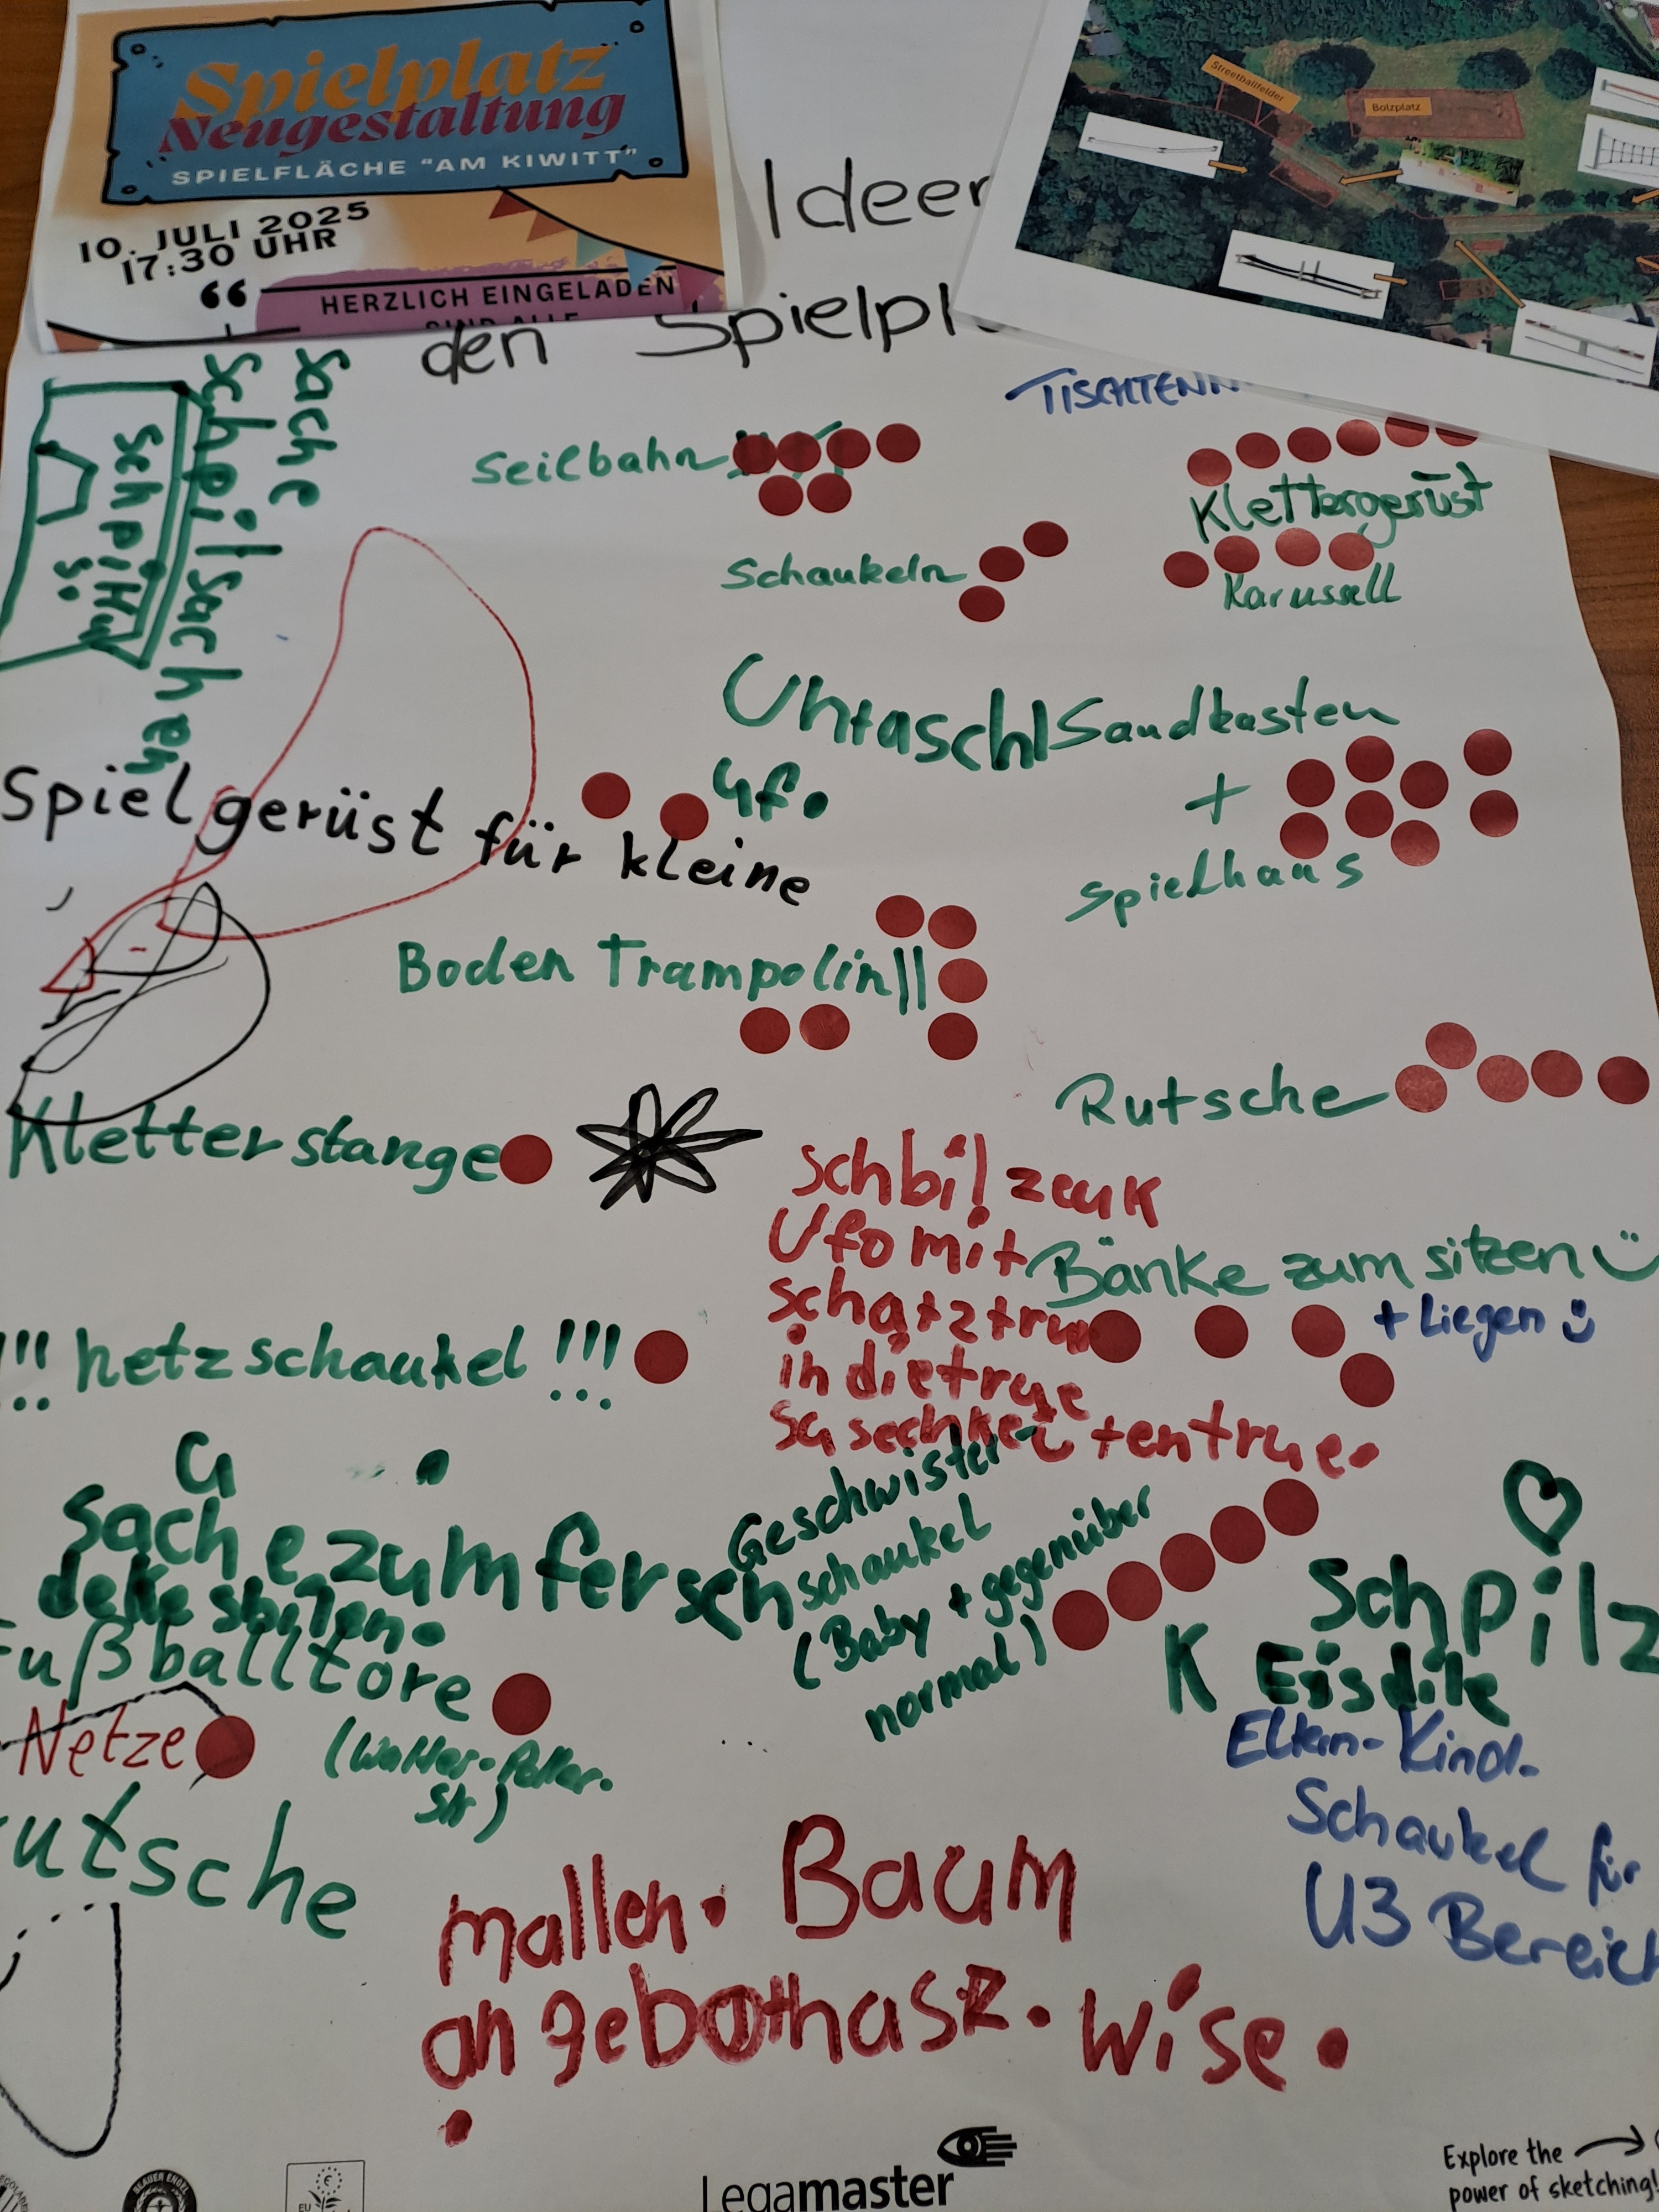 Spielplatz
Neugestaltung
SPIELFLÄCHE "AM KIWITT"
10. JULI 2025
17:30 UHR
HERZLICH EINGELADEN
SIND ALLE
Streetballfelder
Bolzplatz
Ideen
den Spielpl
TISCHTENN
Sache
Schpilsachen
Seilbahn
Klettergerüst
Schaukeln
Karussell
Sandkasten
+
Spielhaus
Spielgerüst für kleine
Boden Trampolin
Rutsche
Kletterstange
schbilzeuk
Ufo mit
schatztrue
in die true
Bänke zum sitzen
+ Liegen
!!! netzschaukel !!!
sache zum fersch
deke spilen.
Geschwister
schaukel
(Baby + gegenüber
normal)
Fußballtore
Netze
Schpilz
K Eisdile
Eltern-Kind-
Schaukel für
U3 Bereich
rutsche
mallen. Baum
angebothasz. Wise.
Legamaster
Explore the
power of sketching!
BLAUER ENGEL
EU